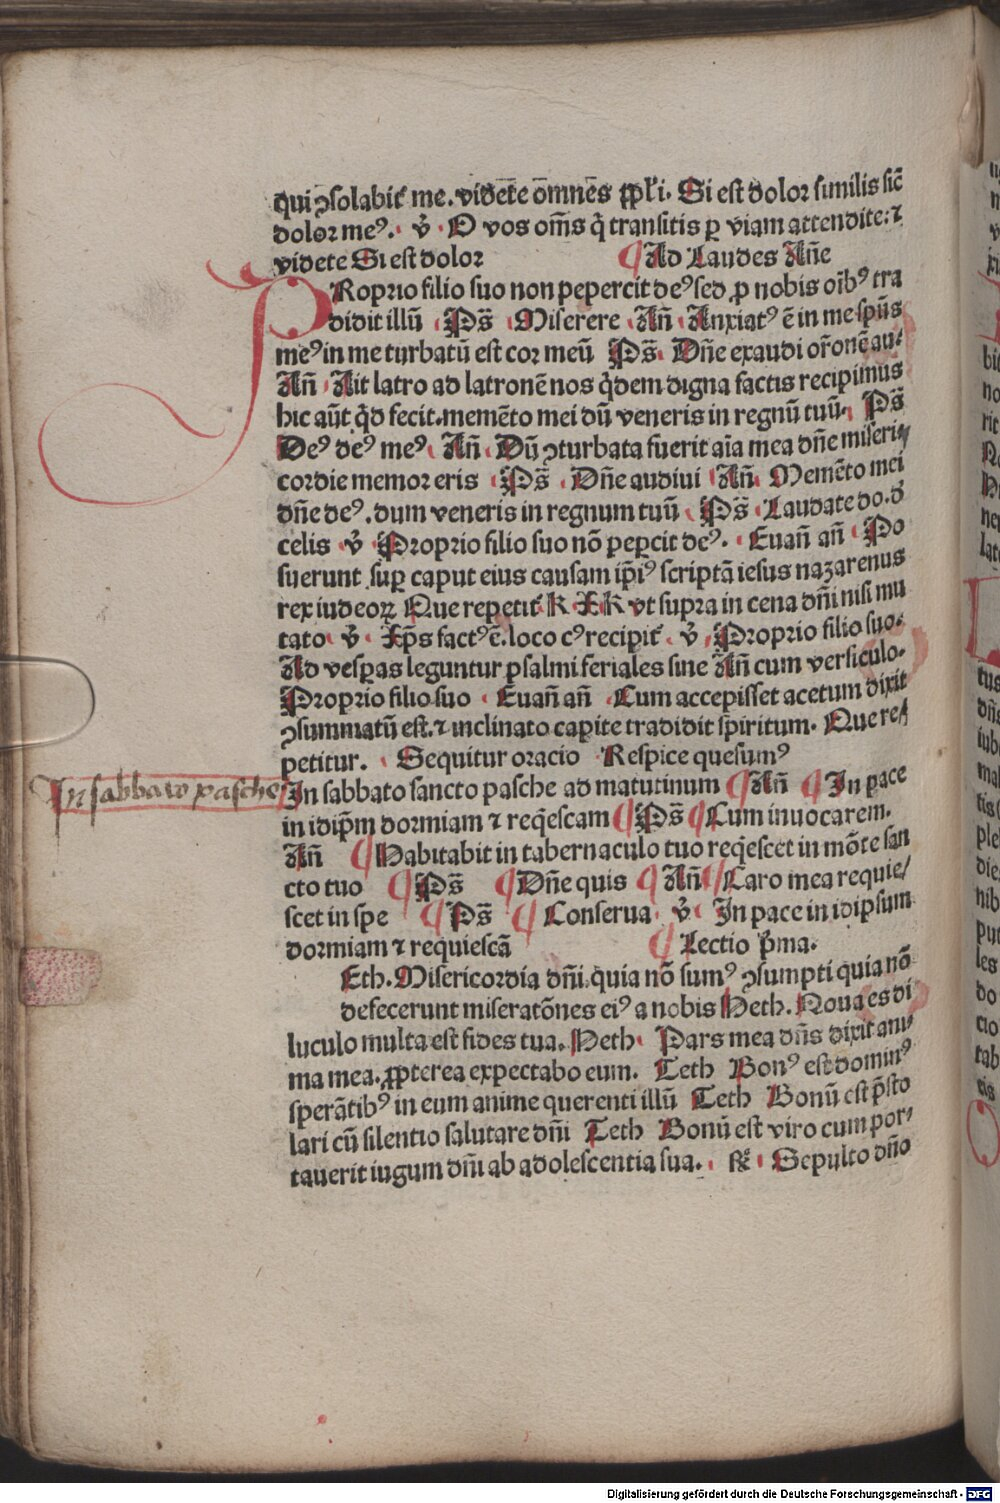 qui ↄsolabit᷑ me. videte omnes ppl̕i. Si est dolor similis sic̄
dolor meꝰ. v̉ O vos om̄s q̄ transitis ꝑ viam attendite: ⁊
videte Si est dolor ¶ Ad Laudes An̄e
PRoprio filio suo non pepercit deꝰ sed ꝓ nobis oīb⁹ tra
didit illū Ps̄ Miserere An̄ Anxiatꝰ ē in me spūs
meꝰ in me turbatū est cor meū Ps̄. Dn̄e exaudi or̄onē au⸗
An̄ Ait latro ad latronē nos q̇dem digna factis recipimus
hic aūt q̇d fecit. memēto mei dū veneris in regnū tuū. Ps̄
Deꝰ deꝰ meꝰ An̄ Dū ↄturbata fuerit aīa mea dn̄e miseri⸗
cordie memor eris Ps̄ Dn̄e audiui An̄ Memēto mei
dn̄e deꝰ. dum veneris in regnum tuū Ps̄ Laudate do. d̄
celis v̉ Proprio filio suo nō peꝑcit deꝰ. Euan̄ an̄ Po
suerunt suꝑ caput eius causam ip̄iꝰ scriptā iesus nazarenus
rex iudeoꝝ Que repetit᷑ K X K vt supra in cena dn̄i nisi mu
tato v̉ Xp̄s factꝰ ē. loco cꝰ recipit᷑ v̉ Proprio filio suo.
Ad vesꝑas leguntur psalmi feriales sine An̄ cum versiculo.
Proprio filio suo Euan̄ an̄ Cum accepisset acetum dixit
ↄsummatū est. ⁊ inclinato capite tradidit spiritum. Que re⸗
petitur. Sequitur oracio Respice quesumꝰ
In sabbato pasche
In sabbato sancto pasche ad matutinum ¶ An̄ ¶ In pace
in idip̄m dormiam ⁊ req̇escam ¶ Ps̄ ¶ Cum inuocarem.
An̄ ¶ Habitabit in tabernaculo tuo req̇escet in mōte san
cto tuo ¶ Ps̄ ¶ Dn̄e quis ¶ An̄ ¶ Caro mea requie⸗
scet in spe ¶ Ps̄ ¶ Conserua v̉ In pace in idipsum
dormiam ⁊ requiescā ¶ Lectio p̄ma.
Eth. Misericordia dn̄i quia nō sumꝰ ↄsumpti quia nō
defecerunt miseratōnes eiꝰ a nobis Heth. Noua es di
luculo multa est fides tua. Heth Pars mea dn̄s dixit ani⸗
ma mea. ꝓpterea expectabo eum. Teth Bonꝰ est dominꝰ
sperātib⁹ in eum anime querenti illū Teth Bonū est p̄sto
lari cū silentio salutare dn̄i Teth Bonū est viro cum por⸗
tauerit iugum dn̄i ab adolescentia sua. ℟ Sepulto dn̄o
Digitalisierung gefördert durch die Deutsche Forschungsgemeinschaft - DFG